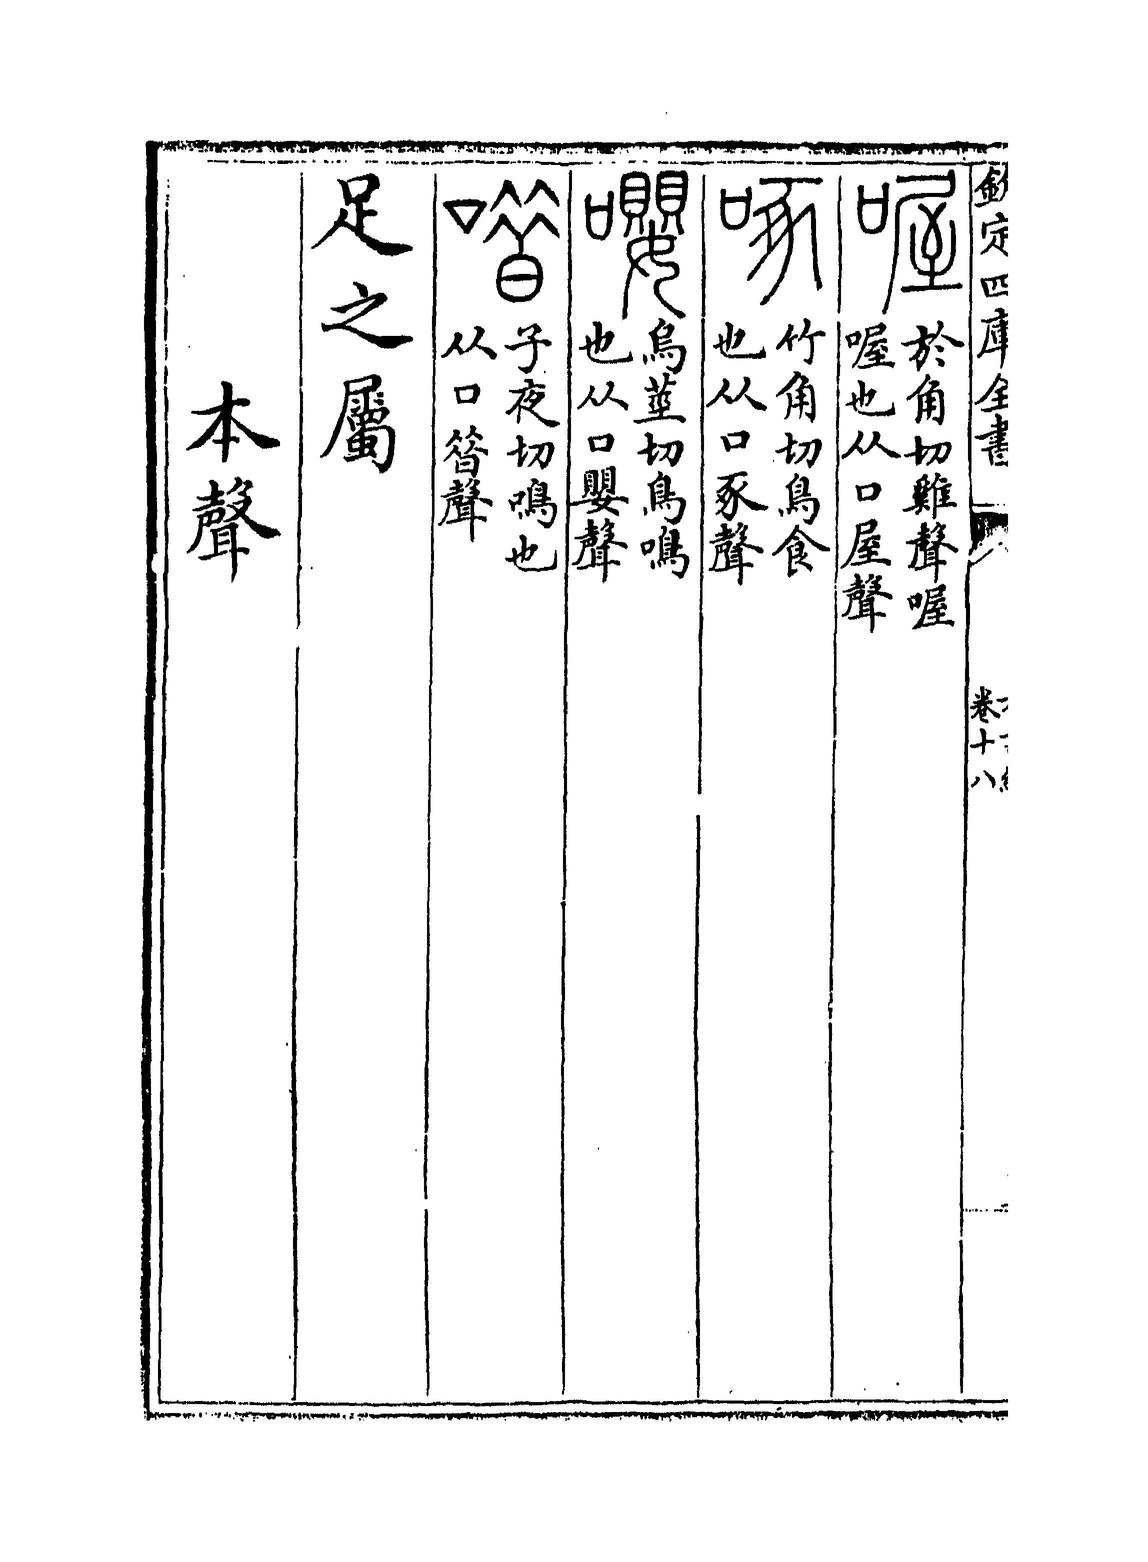 欽定四庫全書
卷十八
喔
於角切雞聲喔
喔也从口屋聲
啄
竹角切鳥食
也从口豖聲
嚶
烏莖切鳥鳴
也从口嬰聲
子夜切鳴也
从口聲
足之屬
本聲